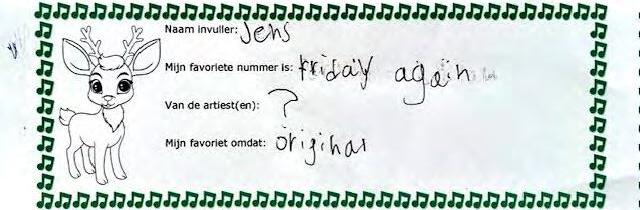 Naam invuller: Jens
Mijn favoriete nummer is: friday again
Van de artiest(en): ?
Mijn favoriet omdat: original